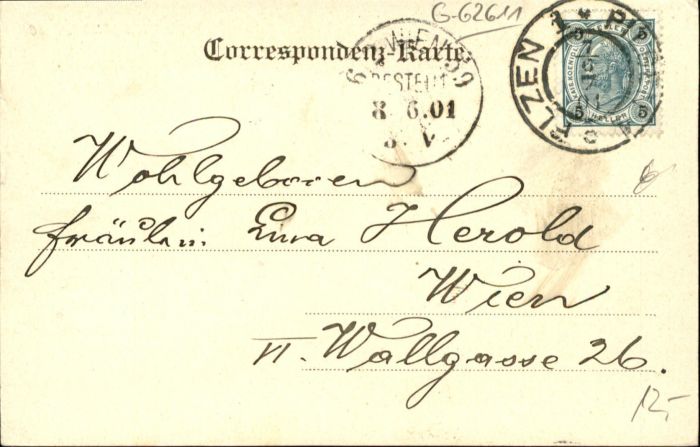 G-62611
Correspondenz-Karte.
WIEN
BESTELLT
8. 6. 01
PILZEN 1
5 5
HELLER
5 5
Wohlgeboren
Fräulein Emma Herold
Wien
VI. Wallgasse 26.
12,-